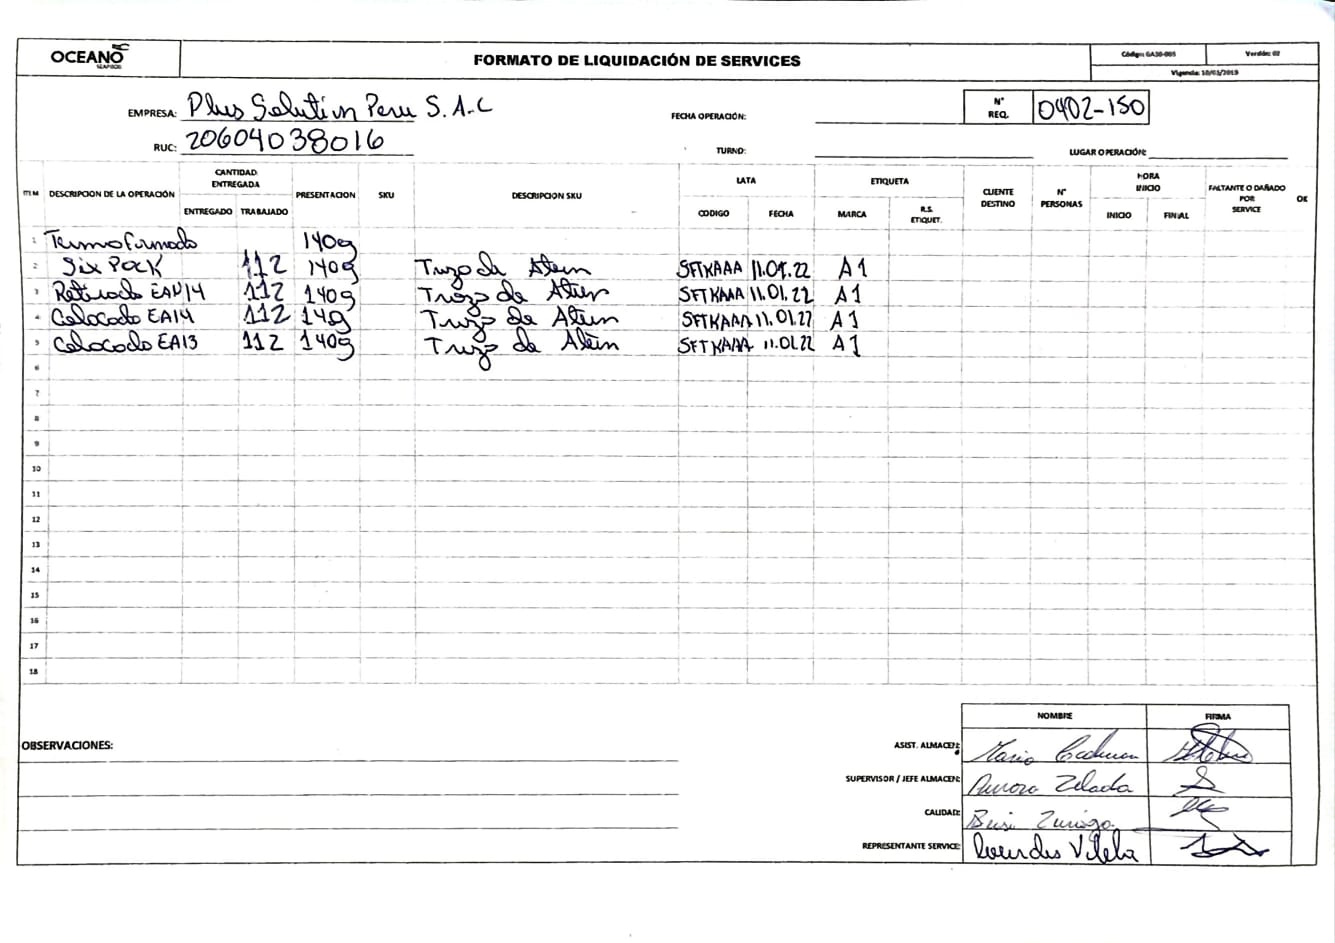 OCEANO
SEAFOOD
FORMATO DE LIQUIDACIÓN DE SERVICES
Código: GA30-005
Versión: 02
Vigencia: 10/01/2019
EMPRESA: Plus Solution Peru S.A.C
FECHA OPERACIÓN:
N° REQ.
0402-150
RUC: 20604038016
TURNO:
LUGAR OPERACIÓN:
ITEM DESCRIPCION DE LA OPERACIÓN CANTIDAD ENTREGADA PRESENTACION SKU DESCRIPCION SKU LATA ETIQUETA CLIENTE DESTINO N° PERSONAS HORA INICIO FALTANTE O DAÑADO POR SERVICE OK
ENTREGADO TRABAJADO CODIGO FECHA MARCA R.S. ETIQUET. INICIO FINAL
1 Termoformado 140g
2 Six Pack 112 140g Trozo de Atun SFTKAAA 11.01.22 A1
3 Retirado EAN14 112 140g Trozo de Atun SFTKAAA 11.01.22 A1
4 Colocado EA14 112 14g Trozo de Atun SFTKAAA 11.01.22 A1
5 Colocado EA13 112 140g Trozo de Atun SFTKAAA 11.01.22 A1
6
7
8
9
10
11
12
13
14
15
16
17
18
NOMBRE FIRMA
OBSERVACIONES:
ASIST. ALMACEN: Mario
SUPERVISOR / JEFE ALMACEN: Aurora Zelada
CALIDAD:
REPRESENTANTE SERVICE: Lourdes Vilela